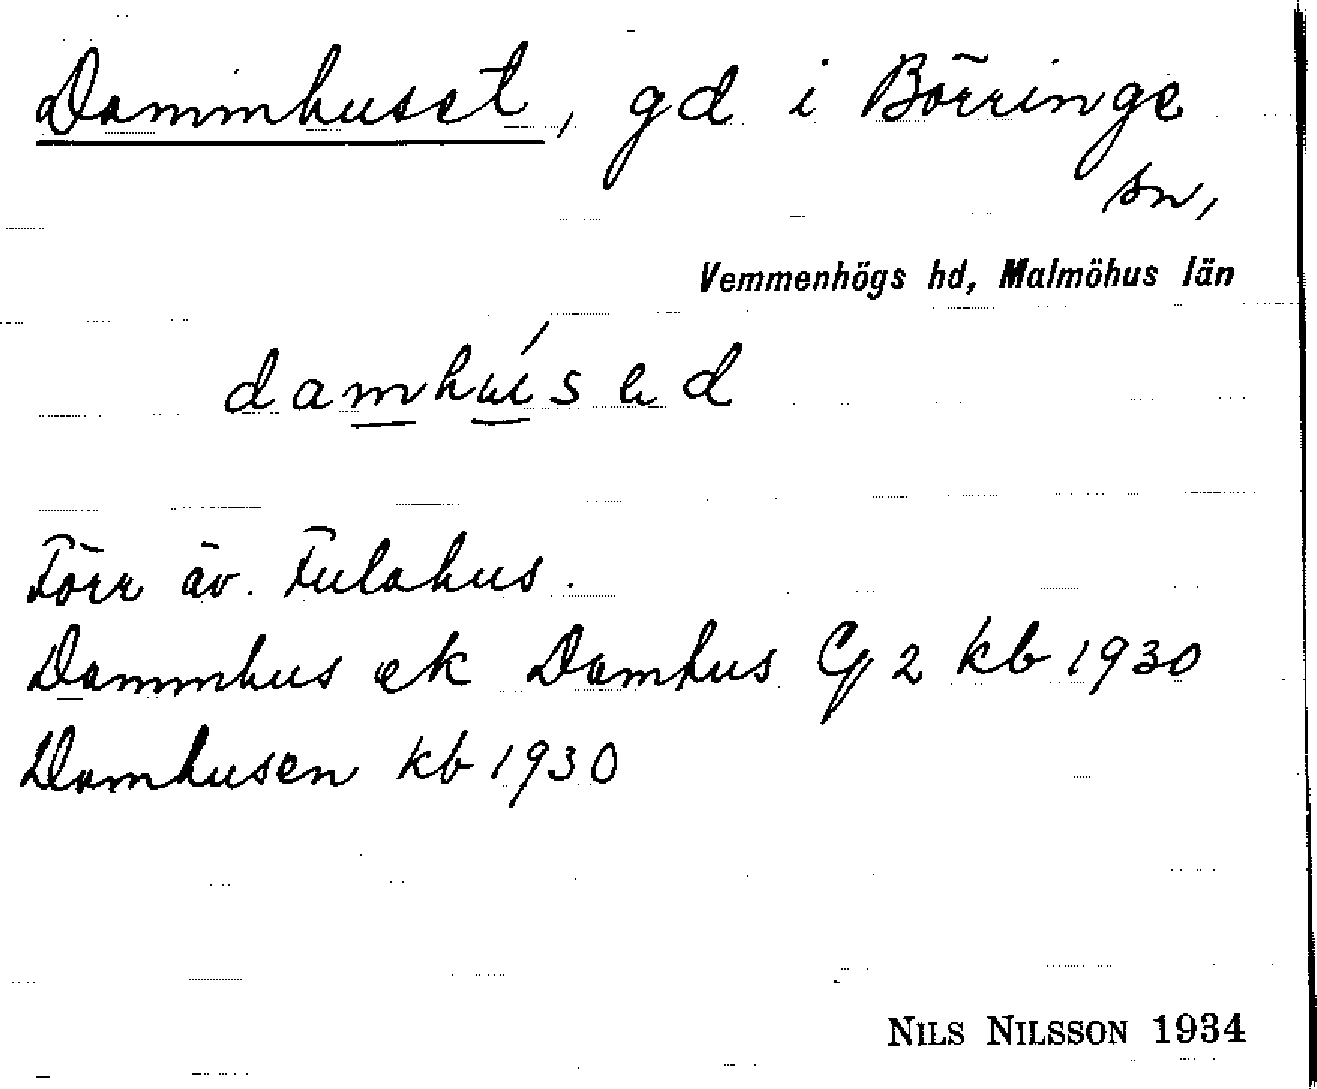 Dammhuset, gd i Börringe
sn,
Vemmenhögs hd, Malmöhus län
damhúsed
Förr äv. Fulahus.
Dammhus ek Damhus Gj 2 kb 1930
Damhusen kb 1930
NILS NILSSON 1934